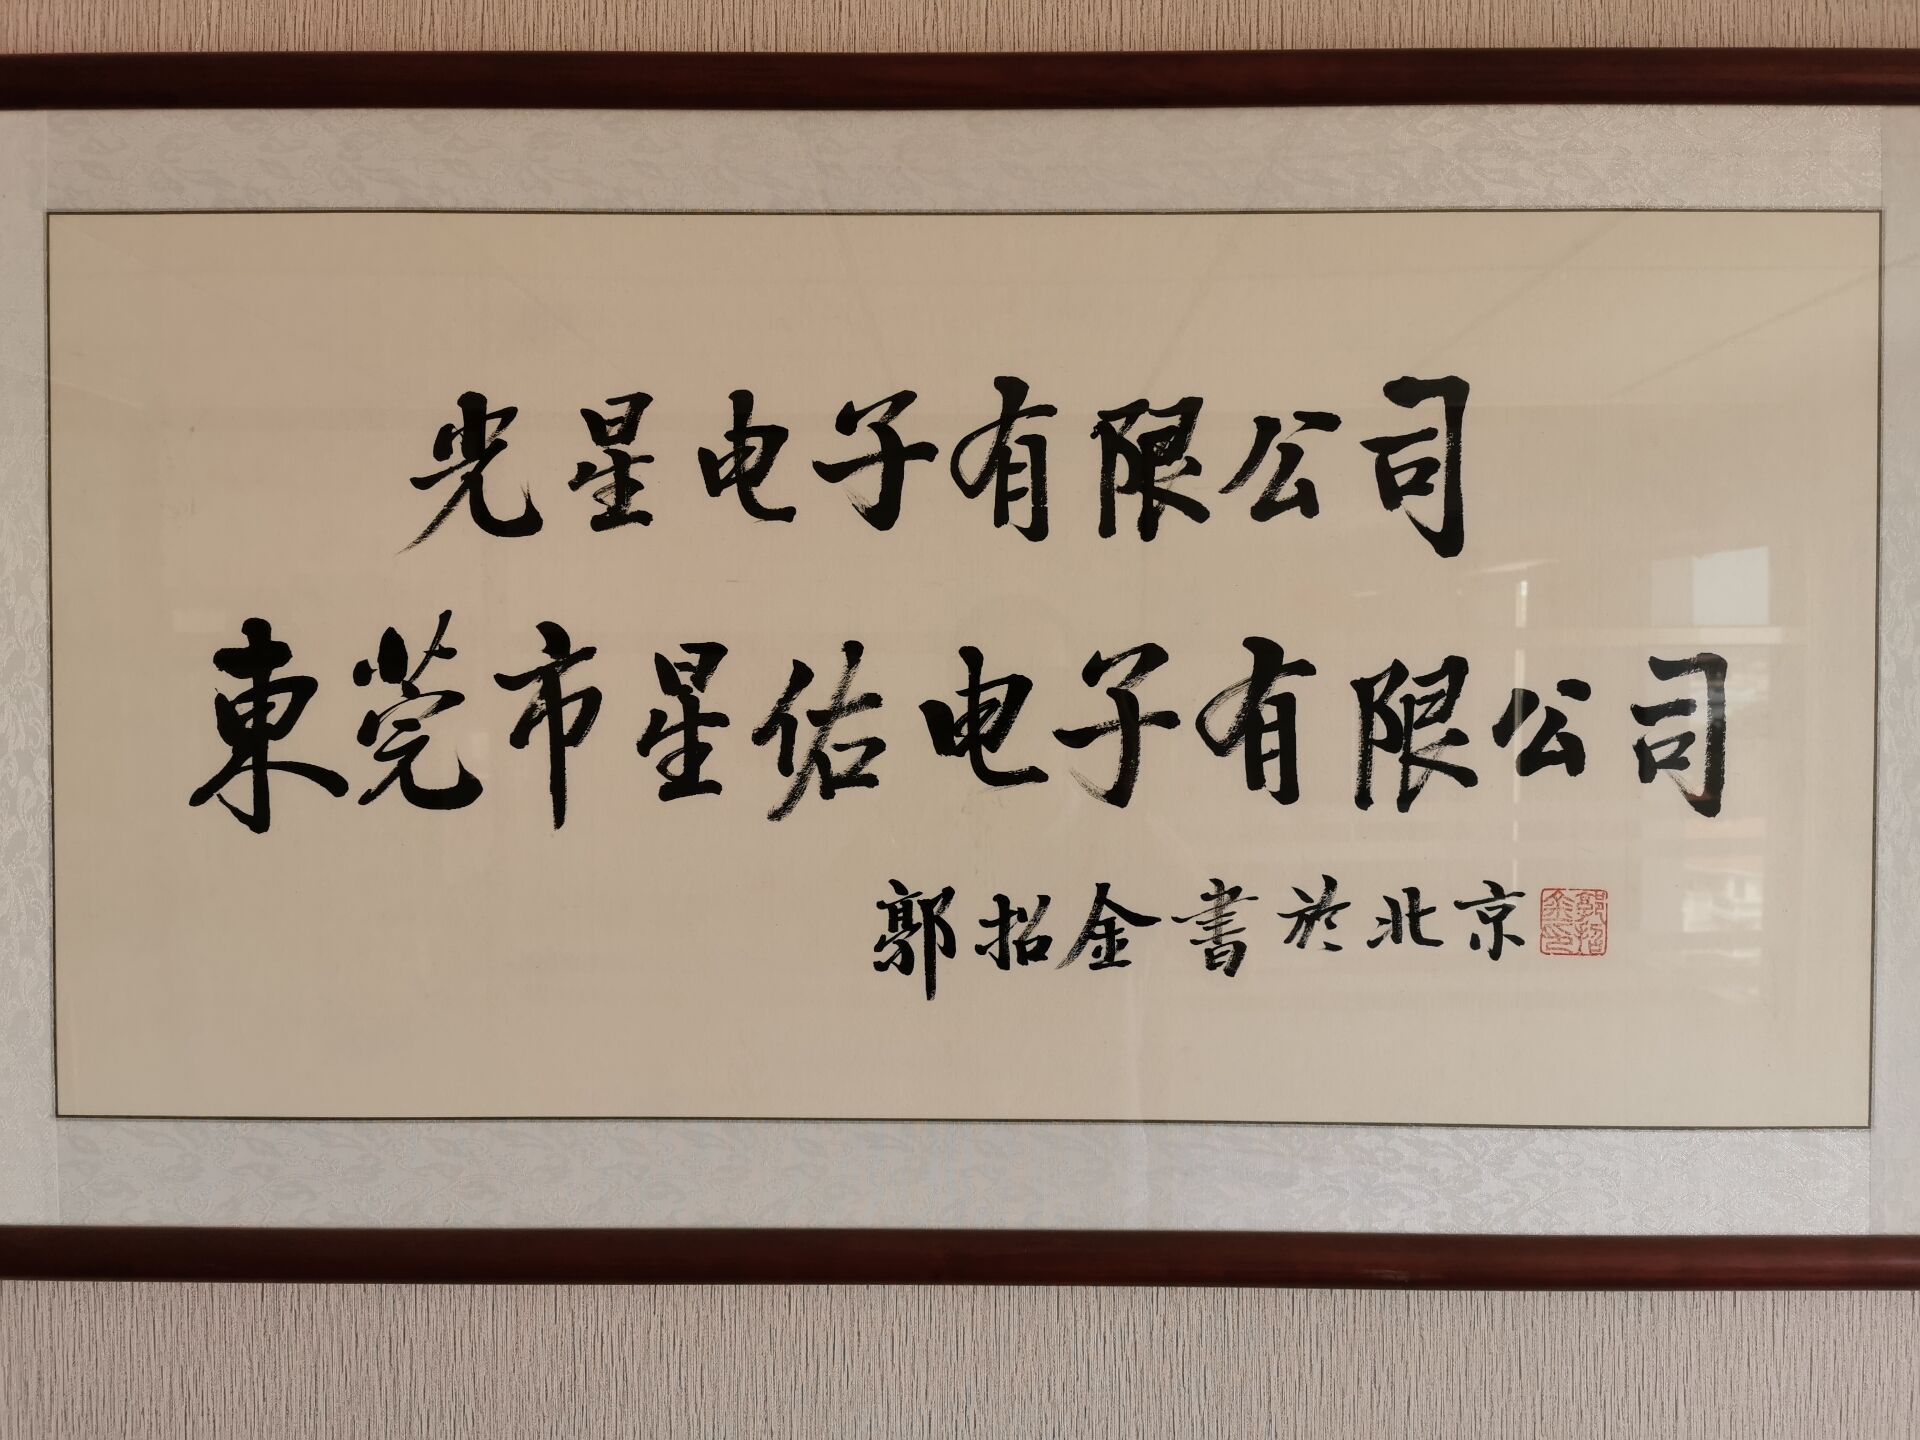 光星电子有限公司
東莞市星佑电子有限公司
郭招金書於北京
郭招金印